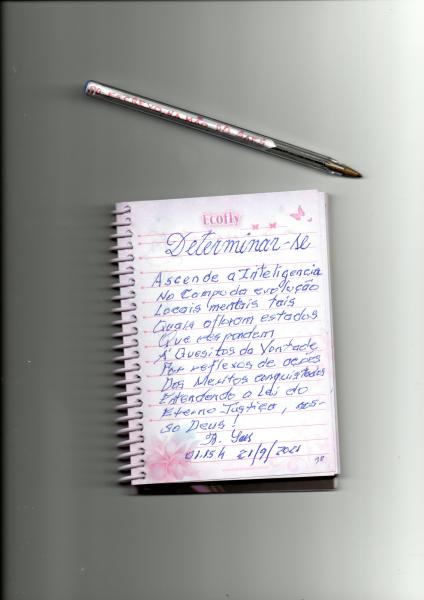 SÓ ESCREVO NA MÃO DO
Ecofly
Determinar-se
Ascende a Inteligencia
No Campo da evolução
Locais mentais tais
Quais afloram estados
Que respondam
A' Quesitos da Vontade
Por reflexos de ações
Dos Meritos conquistados
Entendendo a Lei do
Eterno Justiça, nos-
so Deus!
01.15 h 21/9/2021
18